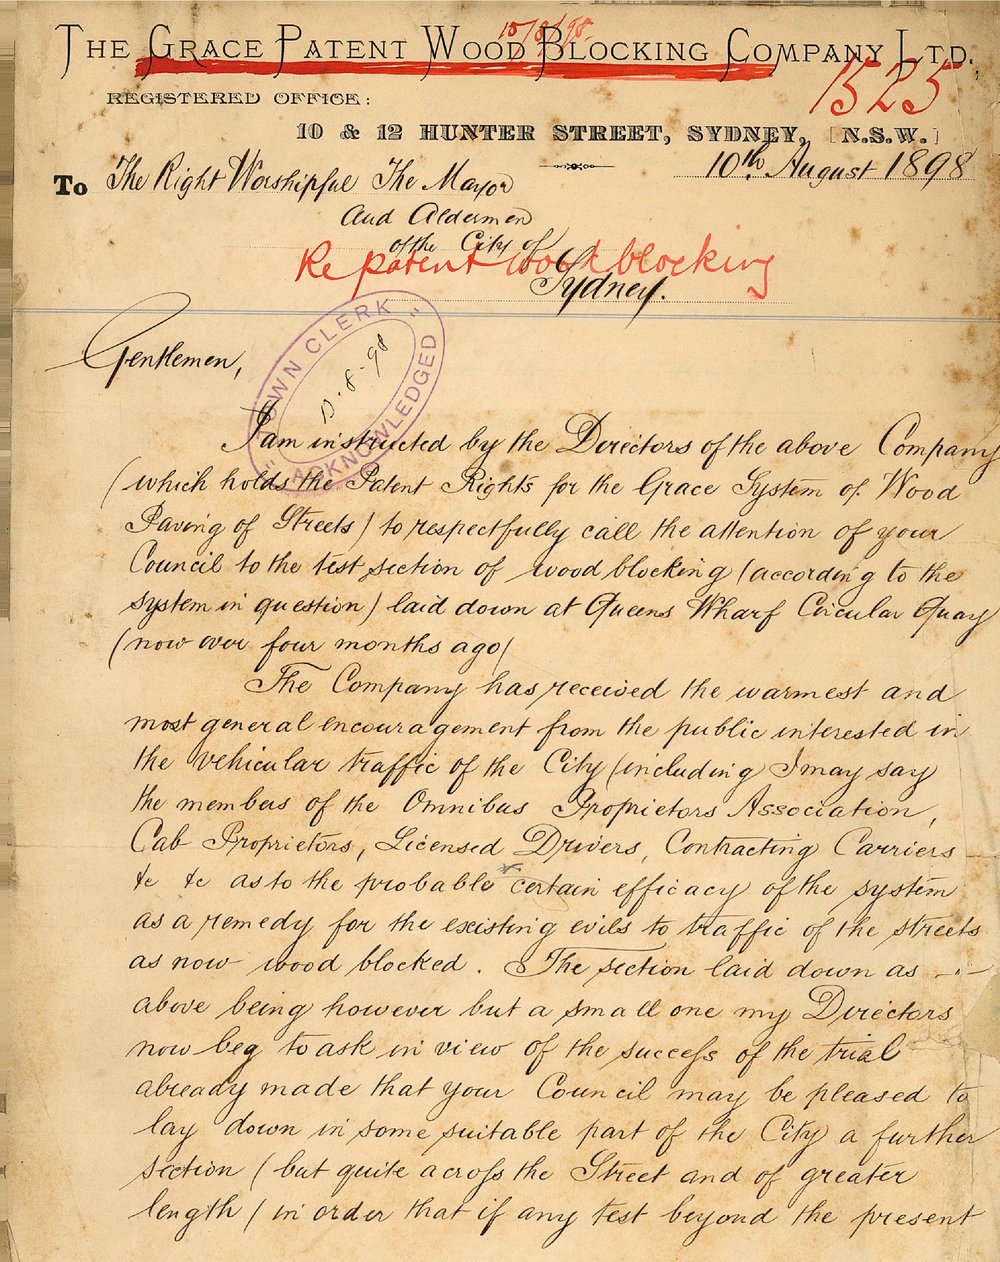 15/8/98.
THE GRACE PATENT WOOD BLOCKING COMPANY LTD.,
1525
REGISTERED OFFICE:
10 & 12 HUNTER STREET, SYDNEY, [N.S.W.]
10th August 1898
To The Right Worshipful The Mayor
And Aldermen
of the City of
Re patent wood blocking
Sydney.
Gentlemen,
"TOWN CLERK"
.8.98
"ACKNOWLEDGED"
I am instructed by the Directors of the above Company
(which holds the Patent Rights for the Grace System of Wood
Paving of Streets) to respectfully call the attention of your
Council to the test section of wood blocking (according to the
system in question) laid down at Queens Wharf Circular Quay
(now over four months ago)
The Company has received the warmest and
most general encouragement from the public interested in
the vehicular traffic of the City (including I may say
the members of the Omnibus Proprietors Association,
Cab Proprietors, Licensed Drivers, Contracting Carriers
&c &c as to the probable certain efficacy of the system
as a remedy for the existing evils to traffic of the streets
as now wood blocked. The section laid down as
above being however but a small one my Directors
now beg to ask in view of the success of the trial
already made that your Council may be pleased to
lay down in some suitable part of the City a further
section (but quite across the Street and of greater
length) in order that if any test beyond the present